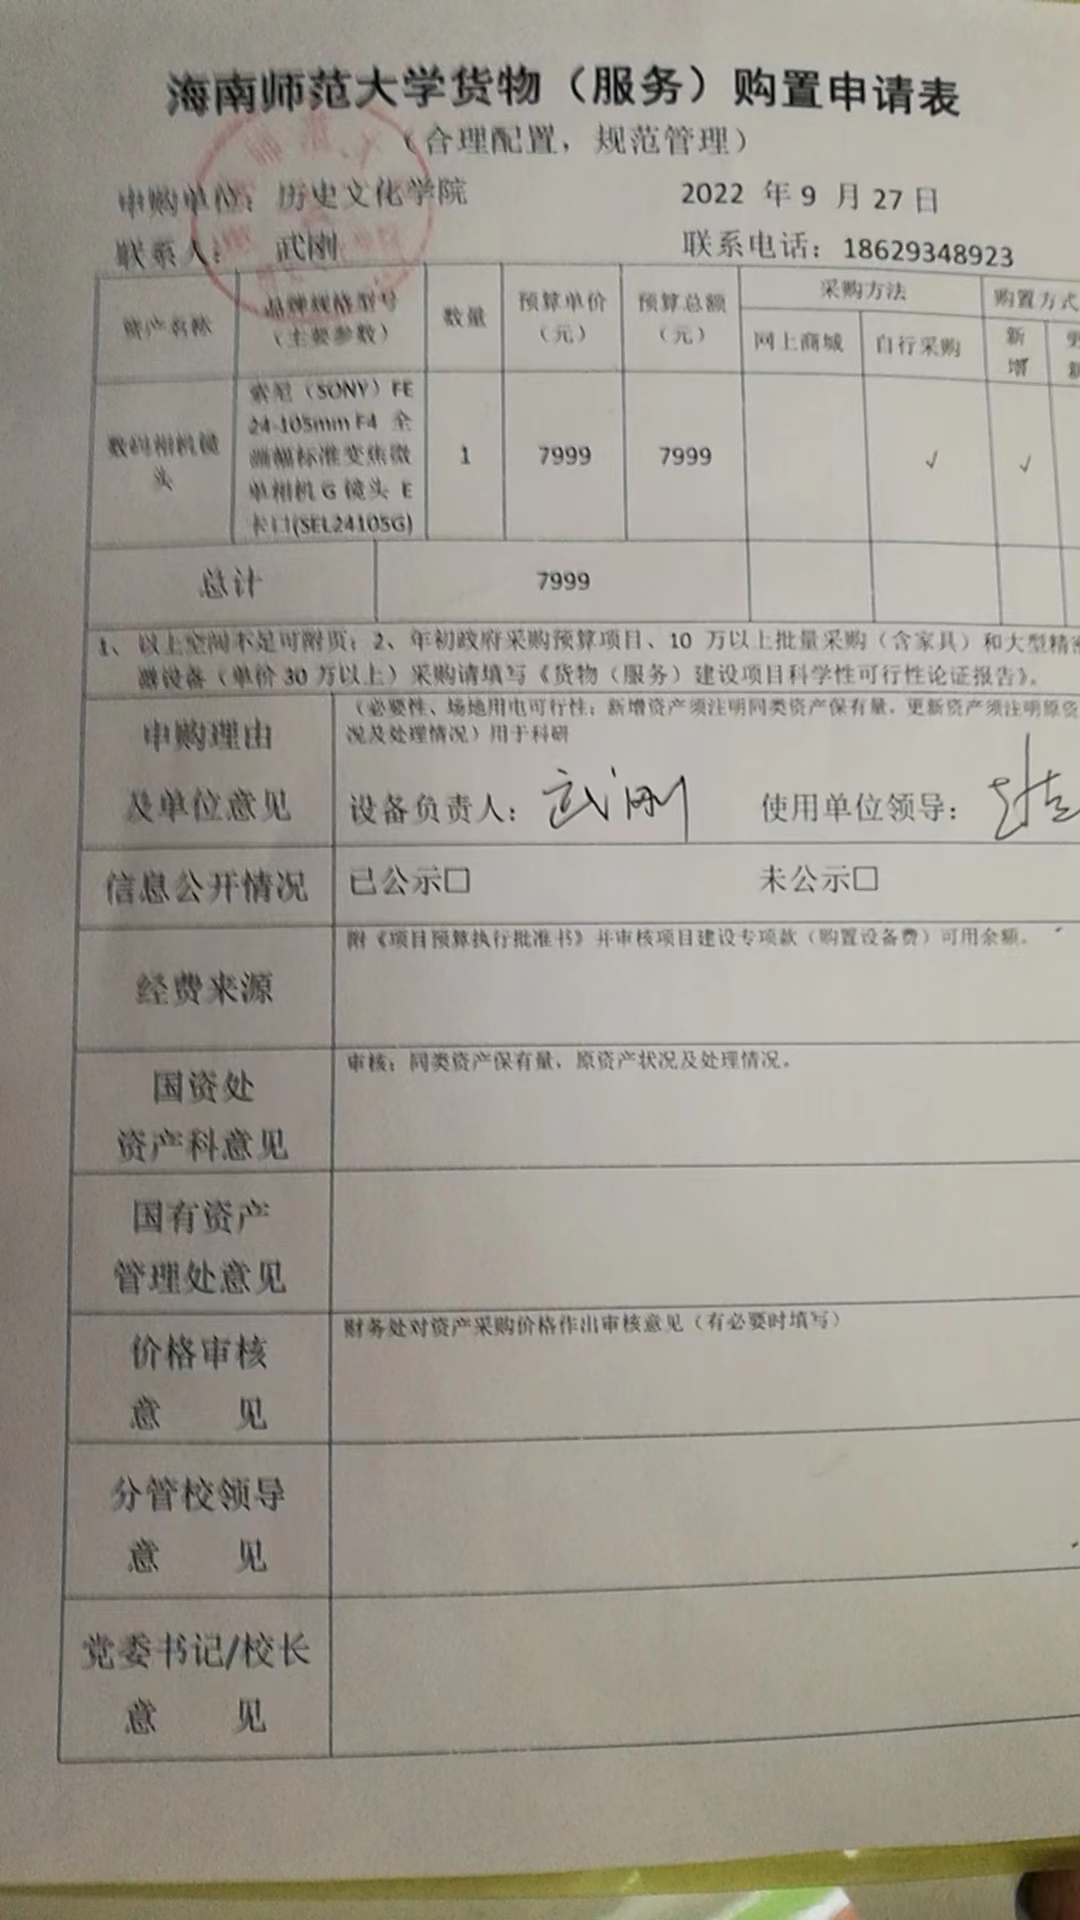 海南师范大学货物（服务）购置申请表
（合理配置，规范管理）
申购单位：历史文化学院 2022 年 9 月 27 日
联系人： 武刚 联系电话：18629348923
资产名称 品牌规格型号（主要参数） 数量 预算单价（元） 预算总额（元） 采购方法 购置方式
网上商城 自行采购 新增
数码相机镜头
索尼（SONY）FE
24-105mm F4 全
画幅标准变焦微
单相机 G 镜头 E
卡口(SEL24105G)
1 7999 7999 ✓ ✓
总计 7999
1、以上空间不足可附页；2、年初政府采购预算项目、10 万以上批量采购（含家具）和大型精密
器设备（单价 30 万以上）采购请填写《货物（服务）建设项目科学性可行性论证报告》。
申购理由
及单位意见
（必要性、场地用电可行性；新增资产须注明同类资产保有量，更新资产须注明原资
况及处理情况）用于科研
设备负责人：武刚 使用单位领导：
信息公开情况 已公示□ 未公示□
经费来源
附《项目预算执行批准书》并审核项目建设专项款（购置设备费）可用余额。
国资处
资产科意见
审核：同类资产保有量，原资产状况及处理情况。
国有资产
管理处意见
价格审核
意 见
财务处对资产采购价格作出审核意见（有必要时填写）
分管校领导
意 见
党委书记/校长
意 见